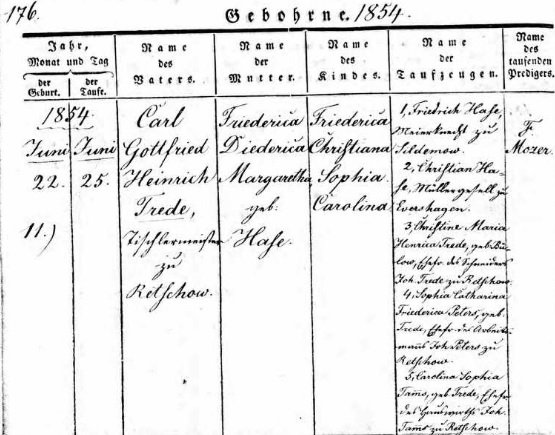 176.
Gebohrne. 1854.
Jahr,
Monat und Tag
der
Geburt.
der
Taufe.
Name
des
Vaters.
Name
der
Mutter.
Name
des
Kindes.
Name
der
Taufzeugen.
Name
des
taufenden
Predigers.
1854
Juni
22.
11.)
Juni
25.
Carl
Gottfried
Heinrich
Trede,
Tischlermeister
zu
Retschow.
Friederica
Diederica
Margaretha,
geb:
Hase.
Friederica
Christiana
Sophia
Carolina
1, Friedrich Hase,
Meierknecht zu
2, Christian Ha-
se, Müllergesell zu
Evershagen.
3, Christine Maria
Henrica Trede, geb. Bü-
low, Ehefr. des Schneiders
Joh. Trede zu Retschow.
4, Sophia Catharina
Friederica Peters, geb.
Trede, Ehefr. des Arbeits-
manns Joh. Peters zu
Retschow.
5, Carolina Sophia
Tams, geb. Trede, Ehefr.
des Joh.
Tams zu Retschow.
F.
Mozer.